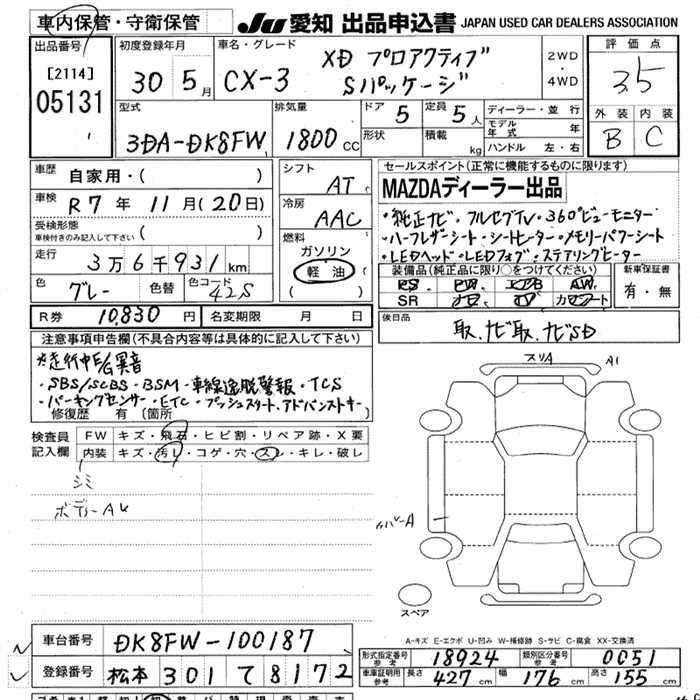 車内保管・守衛保管
JU 愛知 出品申込書 JAPAN USED CAR DEALERS ASSOCIATION
出品番号
[2114]
05131
初度登録年月
30 5月
車名・グレード
CX-3
XD プロアクティブ
Sパッケージ
2WD
・
4WD
評価点
3.5
外装 内装
B C
型式
3DA-DK8FW
排気量
1800 CC
ドア 5
定員 5人
形状
積載 kg
ディーラー・並行
モデル年式 年
ハンドル 左・右
車歴 自家用・( )
車検 R7年 11月(20日)
受検形態
車検付きのみ記入して下さい ( )
走行 3万6千931km
色 グレー 色替 色コード 42S
シフト AT
冷房 AAC
燃料
ガソリン
軽油
( )
R券 10,830円 名変期限 月 日
セールスポイント(正常に機能するものに限ります)
MAZDAディーラー出品
・純正ナビ・フルセグTV・360°ビューモニター
・ハーフレザーシート・シートヒーター・メモリーパワーシート
・LEDヘッド・LEDフォグ・ステアリングヒーター
装備品(純正品に限り○をつけてください)
PS PW エアB AW
SR ナビ TV カワシート
新車保証書
有・無
後日品
取、ナビ取、ナビSD
注意事項申告欄(不具合内容等は具体的に記入して下さい)
※走行中E/G異音
・SBS/SCBS・BSM・車線逸脱警報・TCS
・パーキングセンサー・ETC・プッシュスタート、アドバンストキー
修復歴 有(箇所 )
検査員記入欄
FW キズ・飛石・ヒビ割・リペア跡・X要
内装 キズ・汚レ・コゲ・穴・スレ・キレ・破レ
シミ
スリA A1
カバーA
スペア
A-キズ E-エクボ U-凹み W-補修跡 S-サビ C-腐食 XX-交換済
車台番号 DK8FW-100187
登録番号 松本 301 て 8172
型式指定番号 参考 18924
類別区分番号 参考 0051
車庫証明用 参考 長さ 427cm 幅 176cm 高さ 155cm